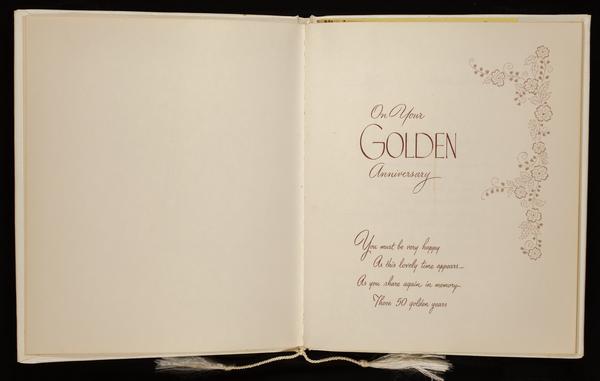 On Your
GOLDEN
Anniversary
You must be very happy
As this lovely time appears—
As you share again in memory
Those 50 golden years